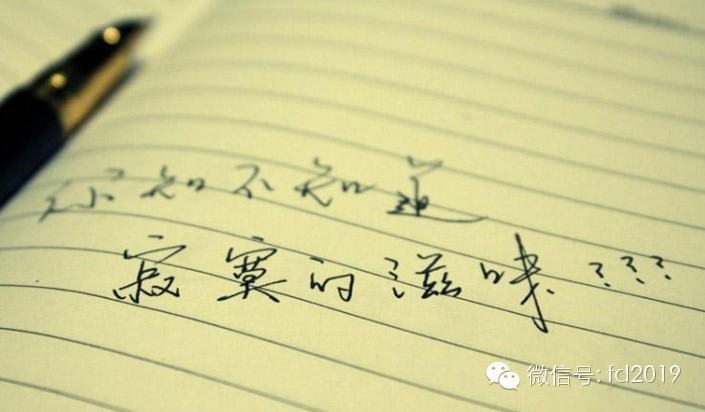 你知不知道
寂寞的滋味???
微信号: fd2019